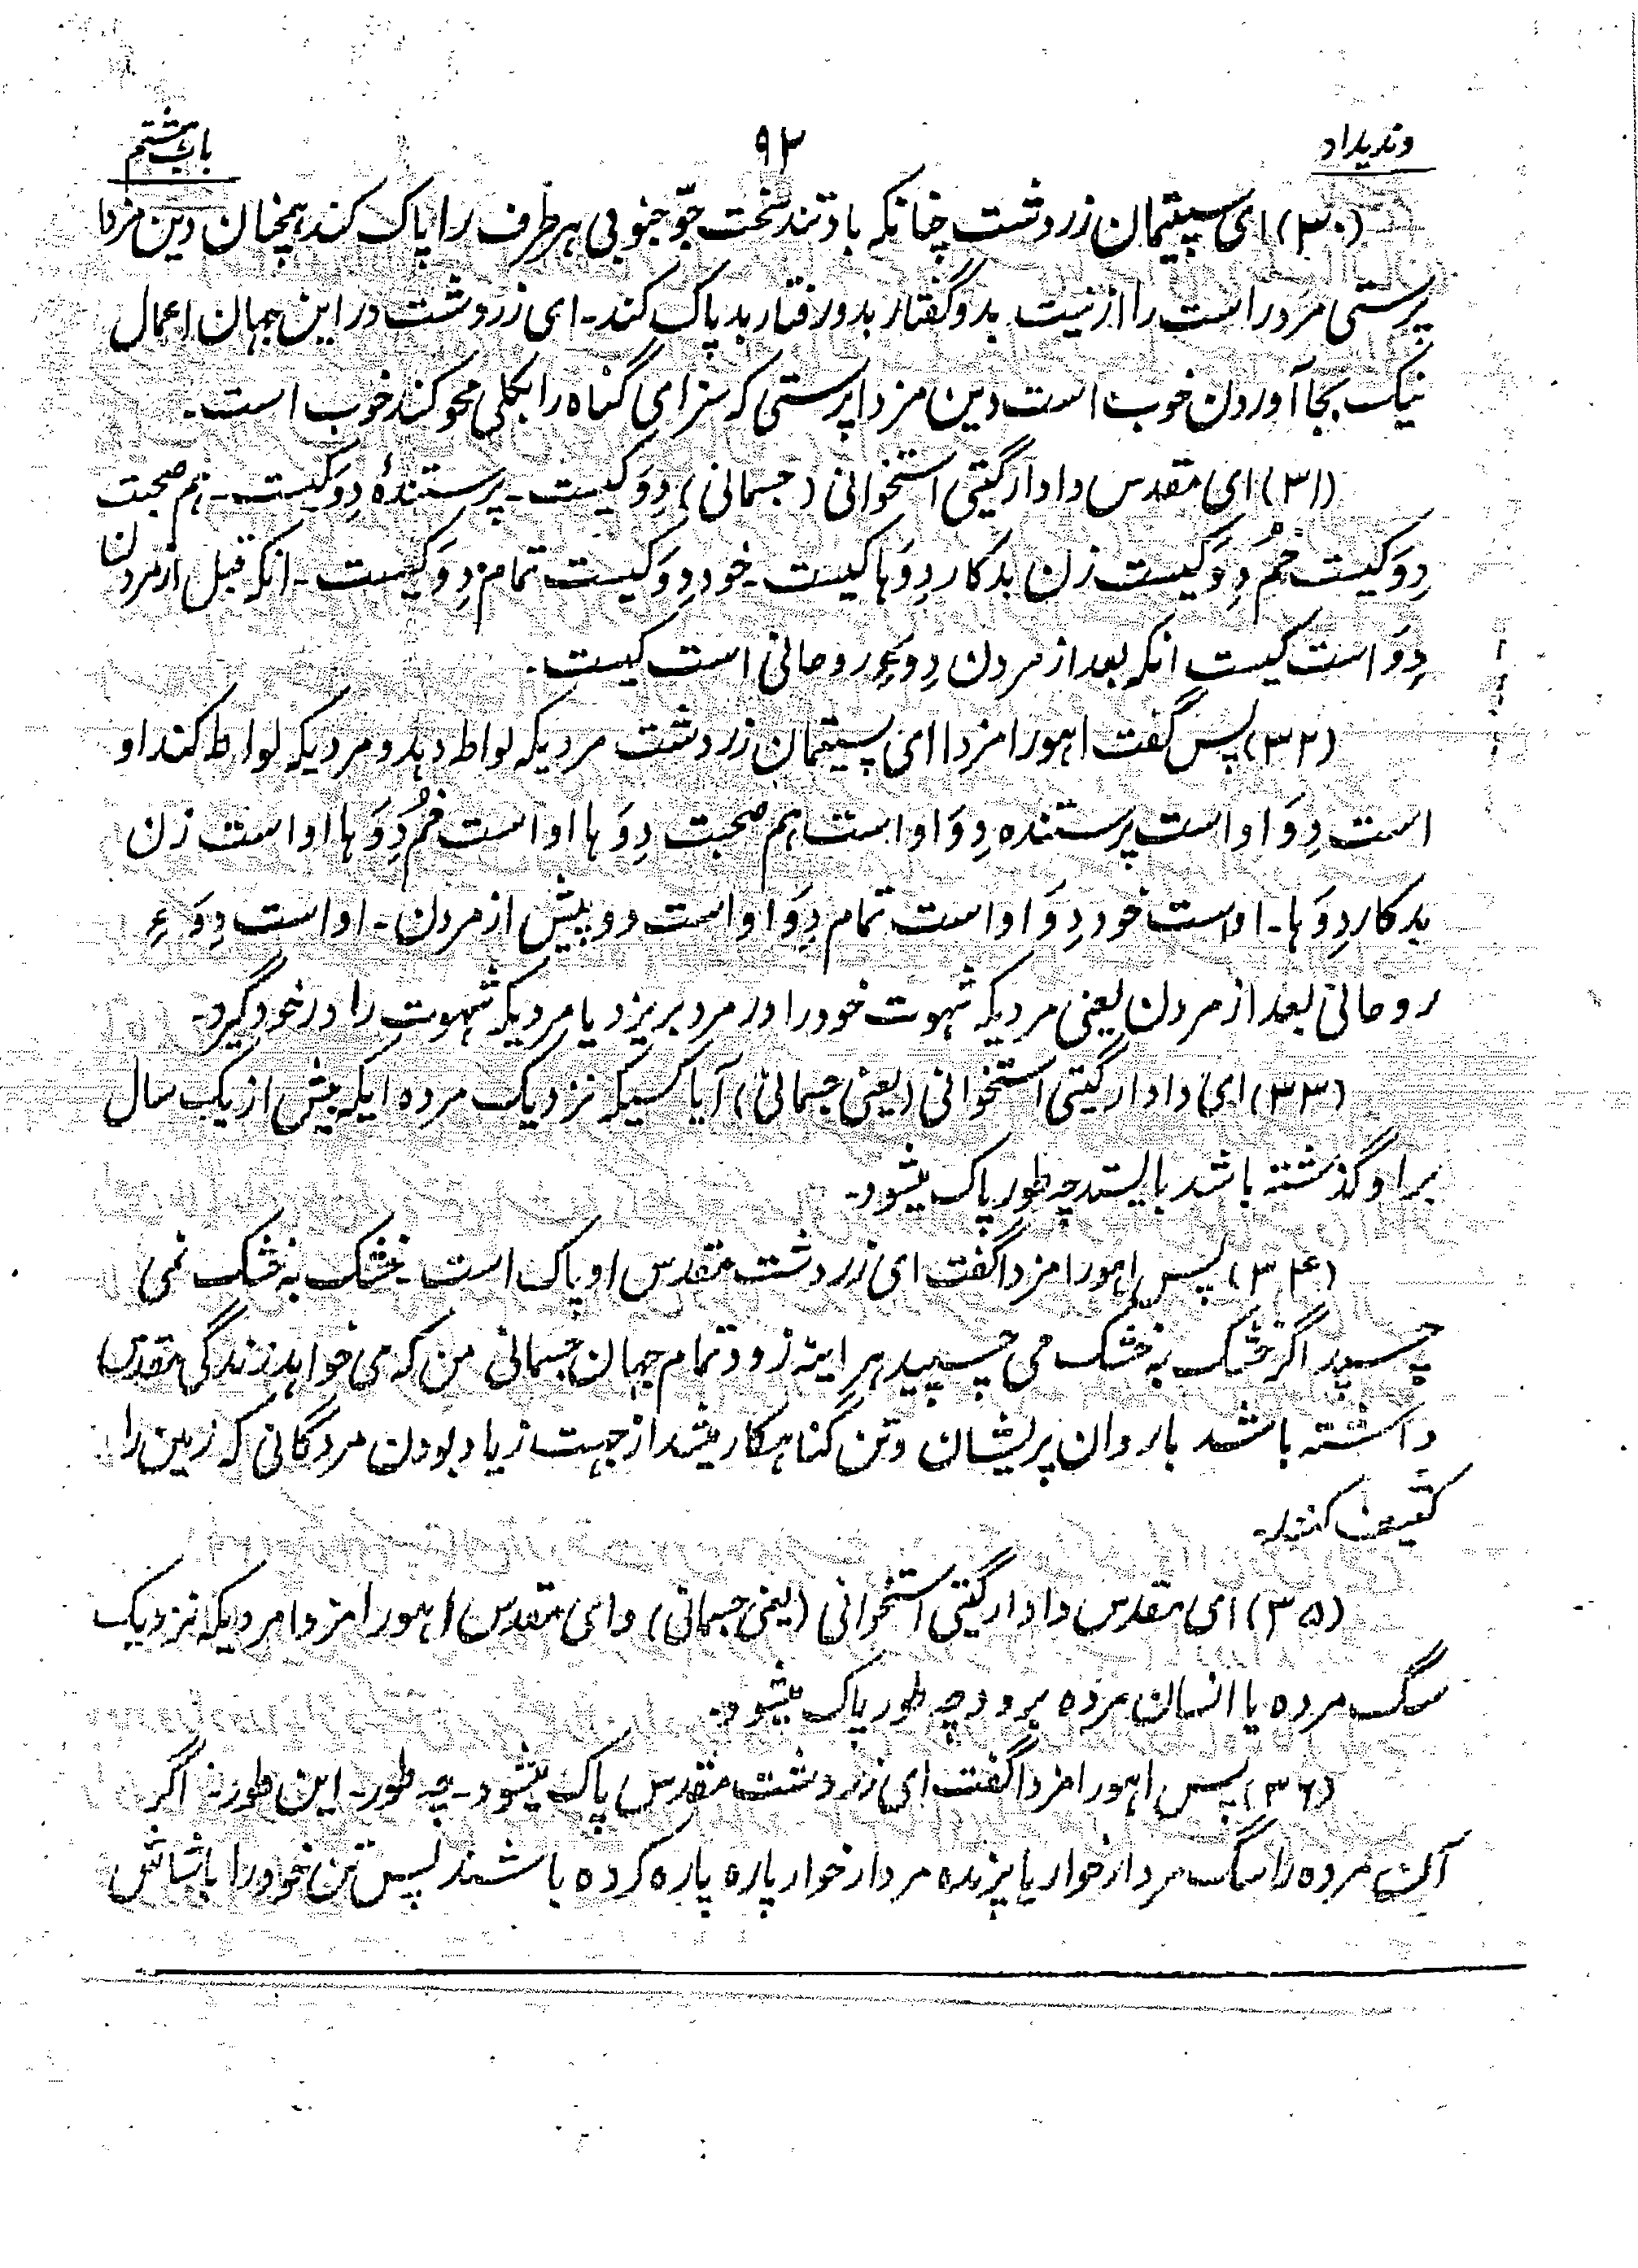 وندیداد
۹۲
باب هشتم
(۳۰) ای سپیتمان زردشت چنانکه باد تند سخت جوّ جنوبی هر طرف را پاک کند همچنان دین مزدا
پرستی مرد راست را از نیت بد و گفتار بد و رفتار بد پاک کند۔ ای زردشت در این جهان اعمال
نیک بجا آوردن خوب است دین مزدا پرستی که سزای گناه را بکلی محو کند خوب است۔
(۳۱) ای مقدس دادار گیتی استخوانی (جسمانی) دِوَ کیست۔ پرستندهٔ دِوَ کیست۔ هم صحبت
دِوَ کیست خُمُ دِوَ کیست زن بدکار دِوَها کیست۔ خود دِوَ کیست تمام دِوَ کیست۔ انکه قبل از مردن
دِوَ است کیست انکه بعد از مردن دِوَ عِ روحانی است کیست۔
(۳۲) پس گفت اهورا مزدا ای سپیتمان زردشت مردیکه لواط دهد و مردیکه لواط کند او
است دِوَ او است پرستنده دِوَ او است هم صحبت دِوَ ها او است خُمُ دِوَ ها او است زن
بدکار دِوَ ها۔ او است خود دِوَ او است تمام دِوَ او است دو پیش از مردن۔ او است دِوَ عِ
روحانی بعد از مردن یعنی مردیکه شهوت خود را در مرد بریزد یا مردیکه شهوت را در خود گیرد۔
(۳۳) ای دادار گیتی استخوانی (یعنی جسمانی) آیا کسیکه نزدیک مرده ایکه بیش از یک سال
بر او گذشته باشد بایستد چه طور پاک میشود۔
(۳۴) پس اهورا مزدا گفت ای زردشت مقدس او پاک است۔ خشک به خشک نمی
چسپد اگر خشک به خشک می چسپید هر اینه زود تمام جهان جسمانی من که می خواهد زندگی مقدس
داشته باشد با روان پریشان و تن گناهکار میشد از جهت زیاد بودن مردگانی که زمین را
کثیف کنند۔
(۳۵) ای مقدس دادار گیتی استخوانی (یعنی جسمانی) و ای مقدس اهورا مزدا مردیکه نزدیک
سگ مرده یا انسان مرده برود چه طور پاک میشود۔
(۳۶) پس اهورا مزدا گفت ای زردشت مقدس پاک میشود۔ چه طور۔ این طور۔ اگر
آن مرده را سگ مردار خوار یا پرنده مردار خوار پاره پاره کرده باشند پس تن خود را با شاش